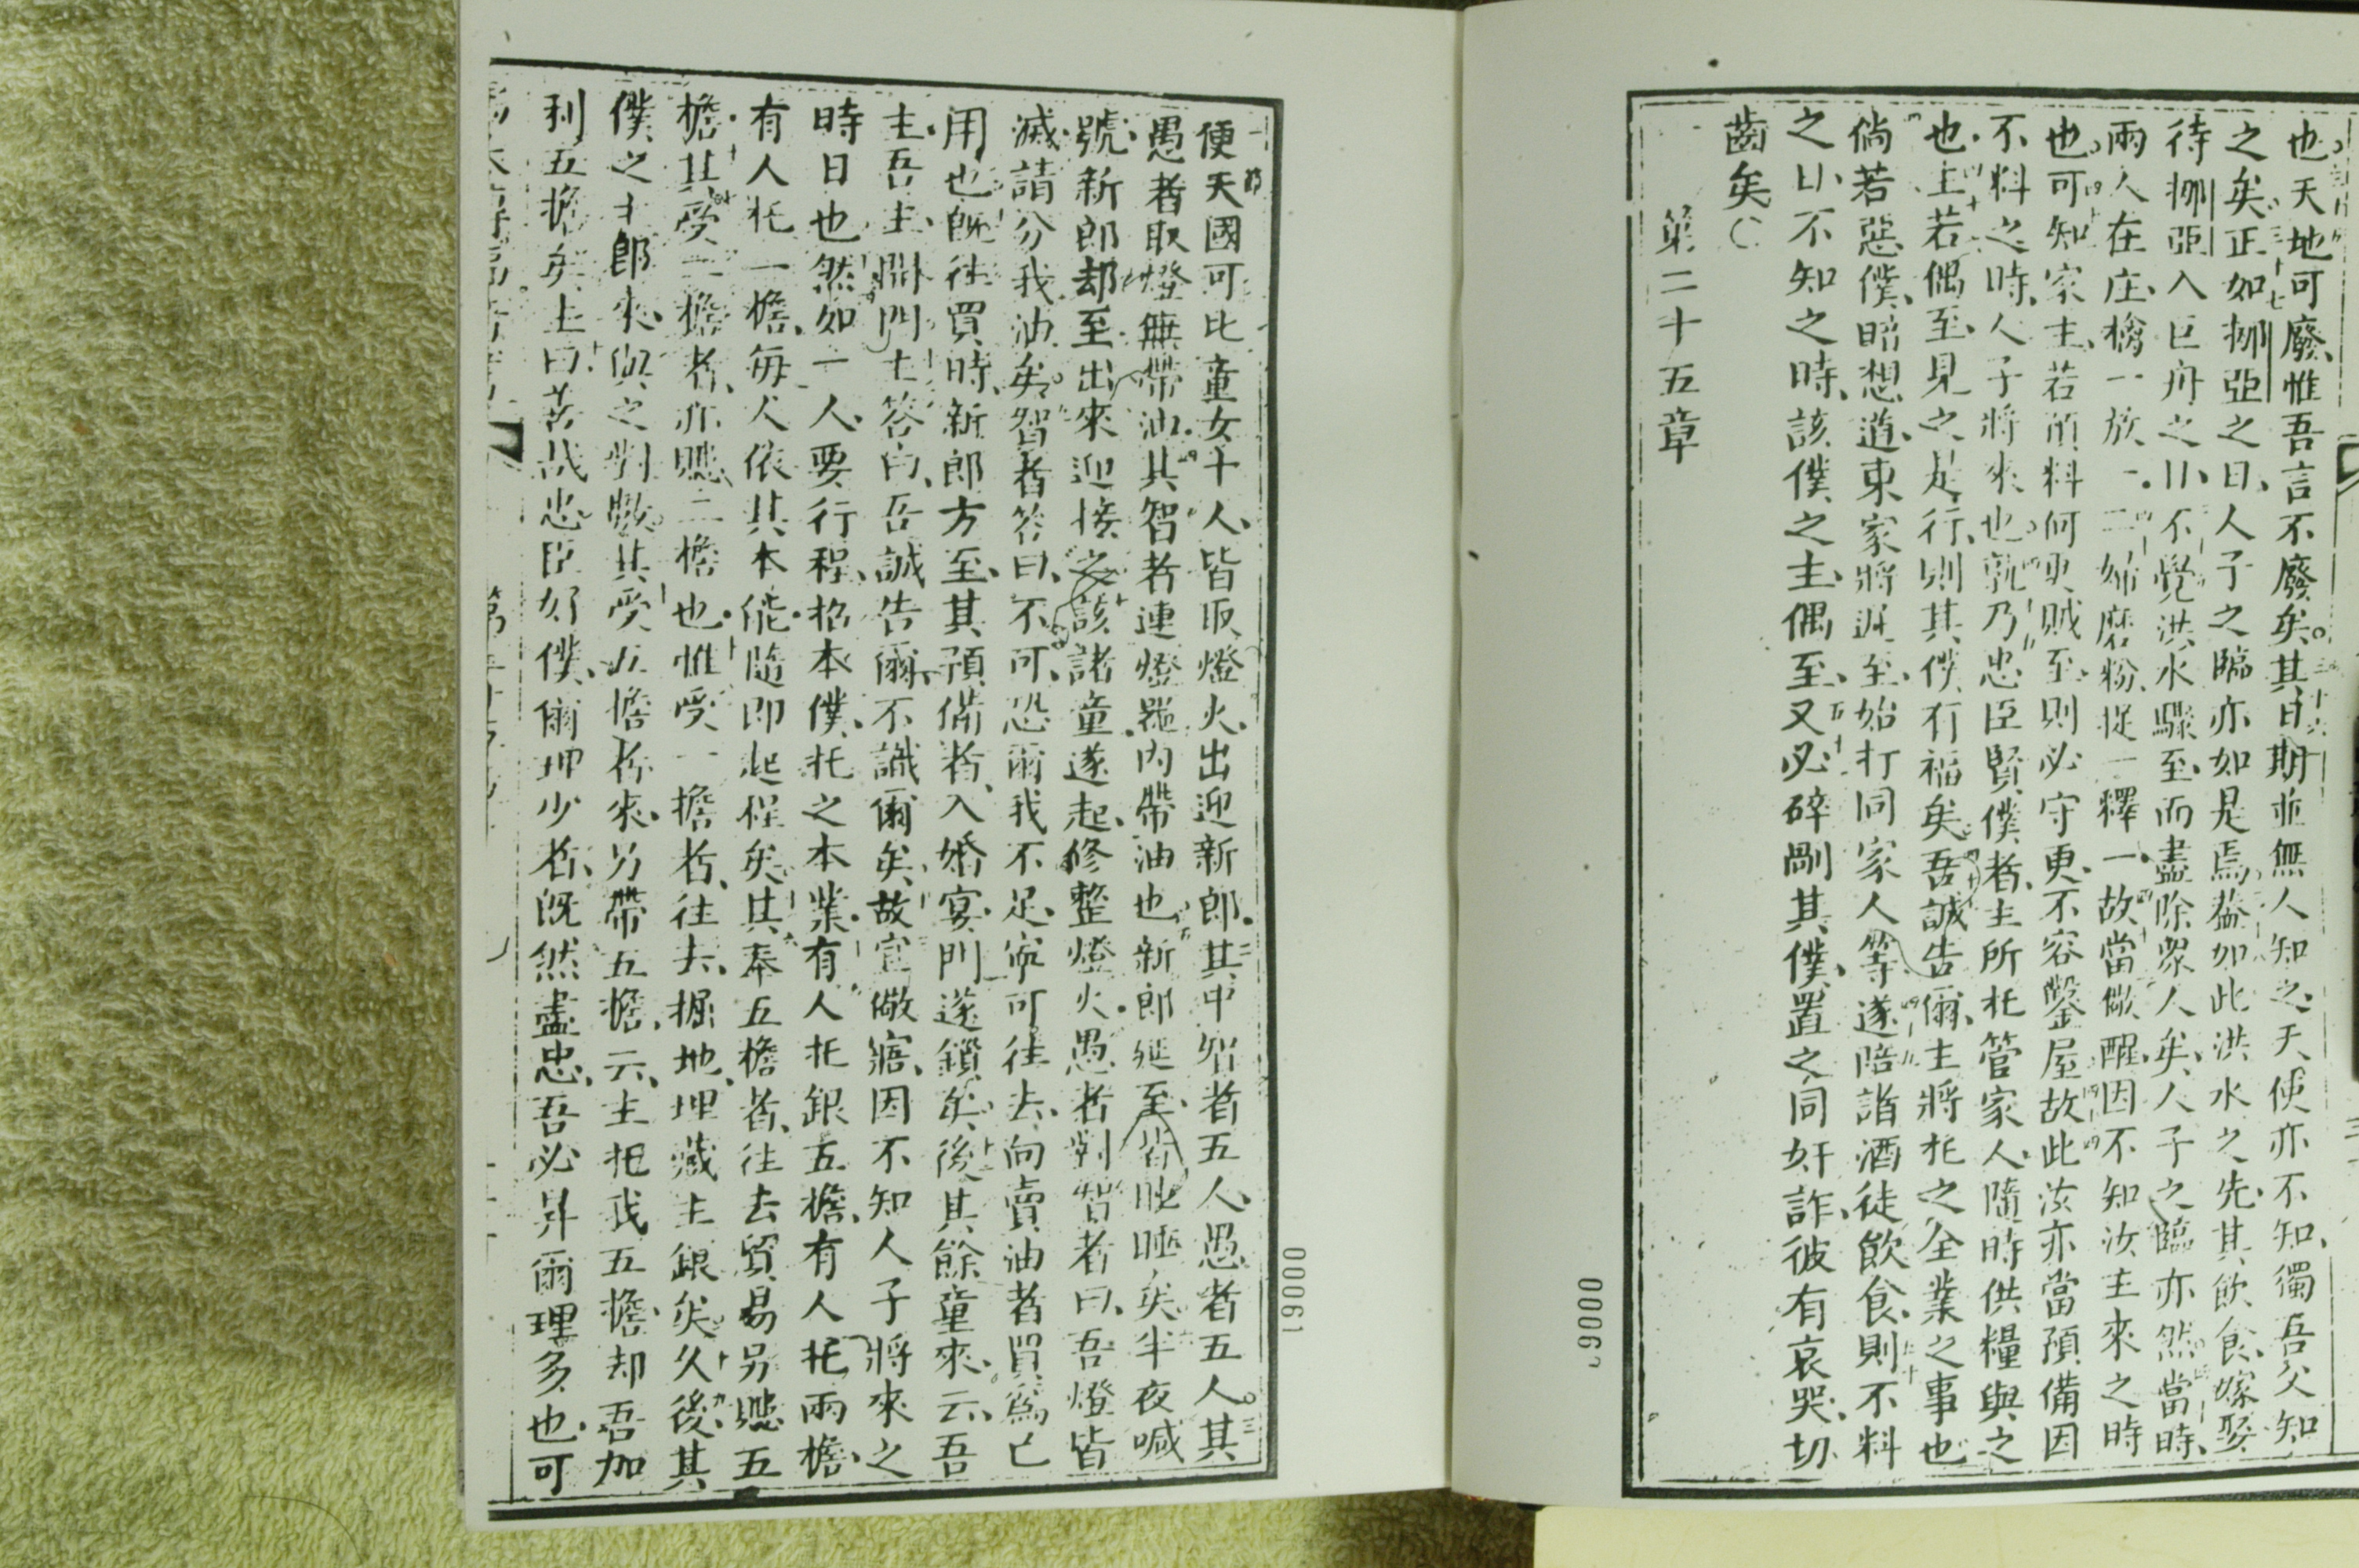 也天地可廢惟吾言不廢矣其日期並無人知之天使亦不知獨吾父知
之矣正如挪亞之日人子之臨亦如是焉蓋如此洪水之先其飲食嫁娶
待挪亞入巨舟之日不覺洪水驟至而盡除眾人矣人子之臨亦然當時
兩人在庄擒一放一二婦磨粉捉一釋一故當儆醒因不知汝主來之時
也可知家主若預料何更賊至則必守更不容鑿屋故此汝亦當預備因
不料之時人子將來也孰乃忠臣賢僕者主所托管家人隨時供糧與之
也主若偶至見之是行則其僕有福矣吾誠告爾主將托之全業之事也
倘若惡僕暗想道東家將遲至始打同家人等遂陪諧酒徒飲食則不料
之日不知之時該僕之主偶至又必碎剮其僕置之同奸詐彼有哀哭切
齒矣
第二十五章
便天國可比童女十人皆取燈火出迎新郎其中智者五人愚者五人其
愚者取燈無帶油其智者連燈器內帶油也新郎延至皆眈睡矣半夜喊
號新郎却至出來迎接之該諸童遂起修整燈火愚者對智者曰吾燈皆
滅請分我油矣智者答曰不可恐爾我不足寧可往去向賣油者買為己
用也既往買時新郎方至其預備者入婚宴門遂鎖矣後其餘童來云吾
主吾主開門主答白吾誠告爾不識爾矣故宜儆寤因不知人子將來之
時日也然如一人要行程招本僕托之本業有人托銀五擔有人托兩擔
有人托一擔每人依其本能隨即起程矣其奉五擔者往去貿易另賺五
擔其受二擔者亦賺二擔也惟受一擔者往去掘地埋藏主銀矣久後其
僕之主郎來與之對數其受五擔者來另帶五擔云主托我五擔却吾加
利五擔矣主曰善哉忠臣好僕爾理少者既然盡忠吾必昇爾理多也可
00061
0006